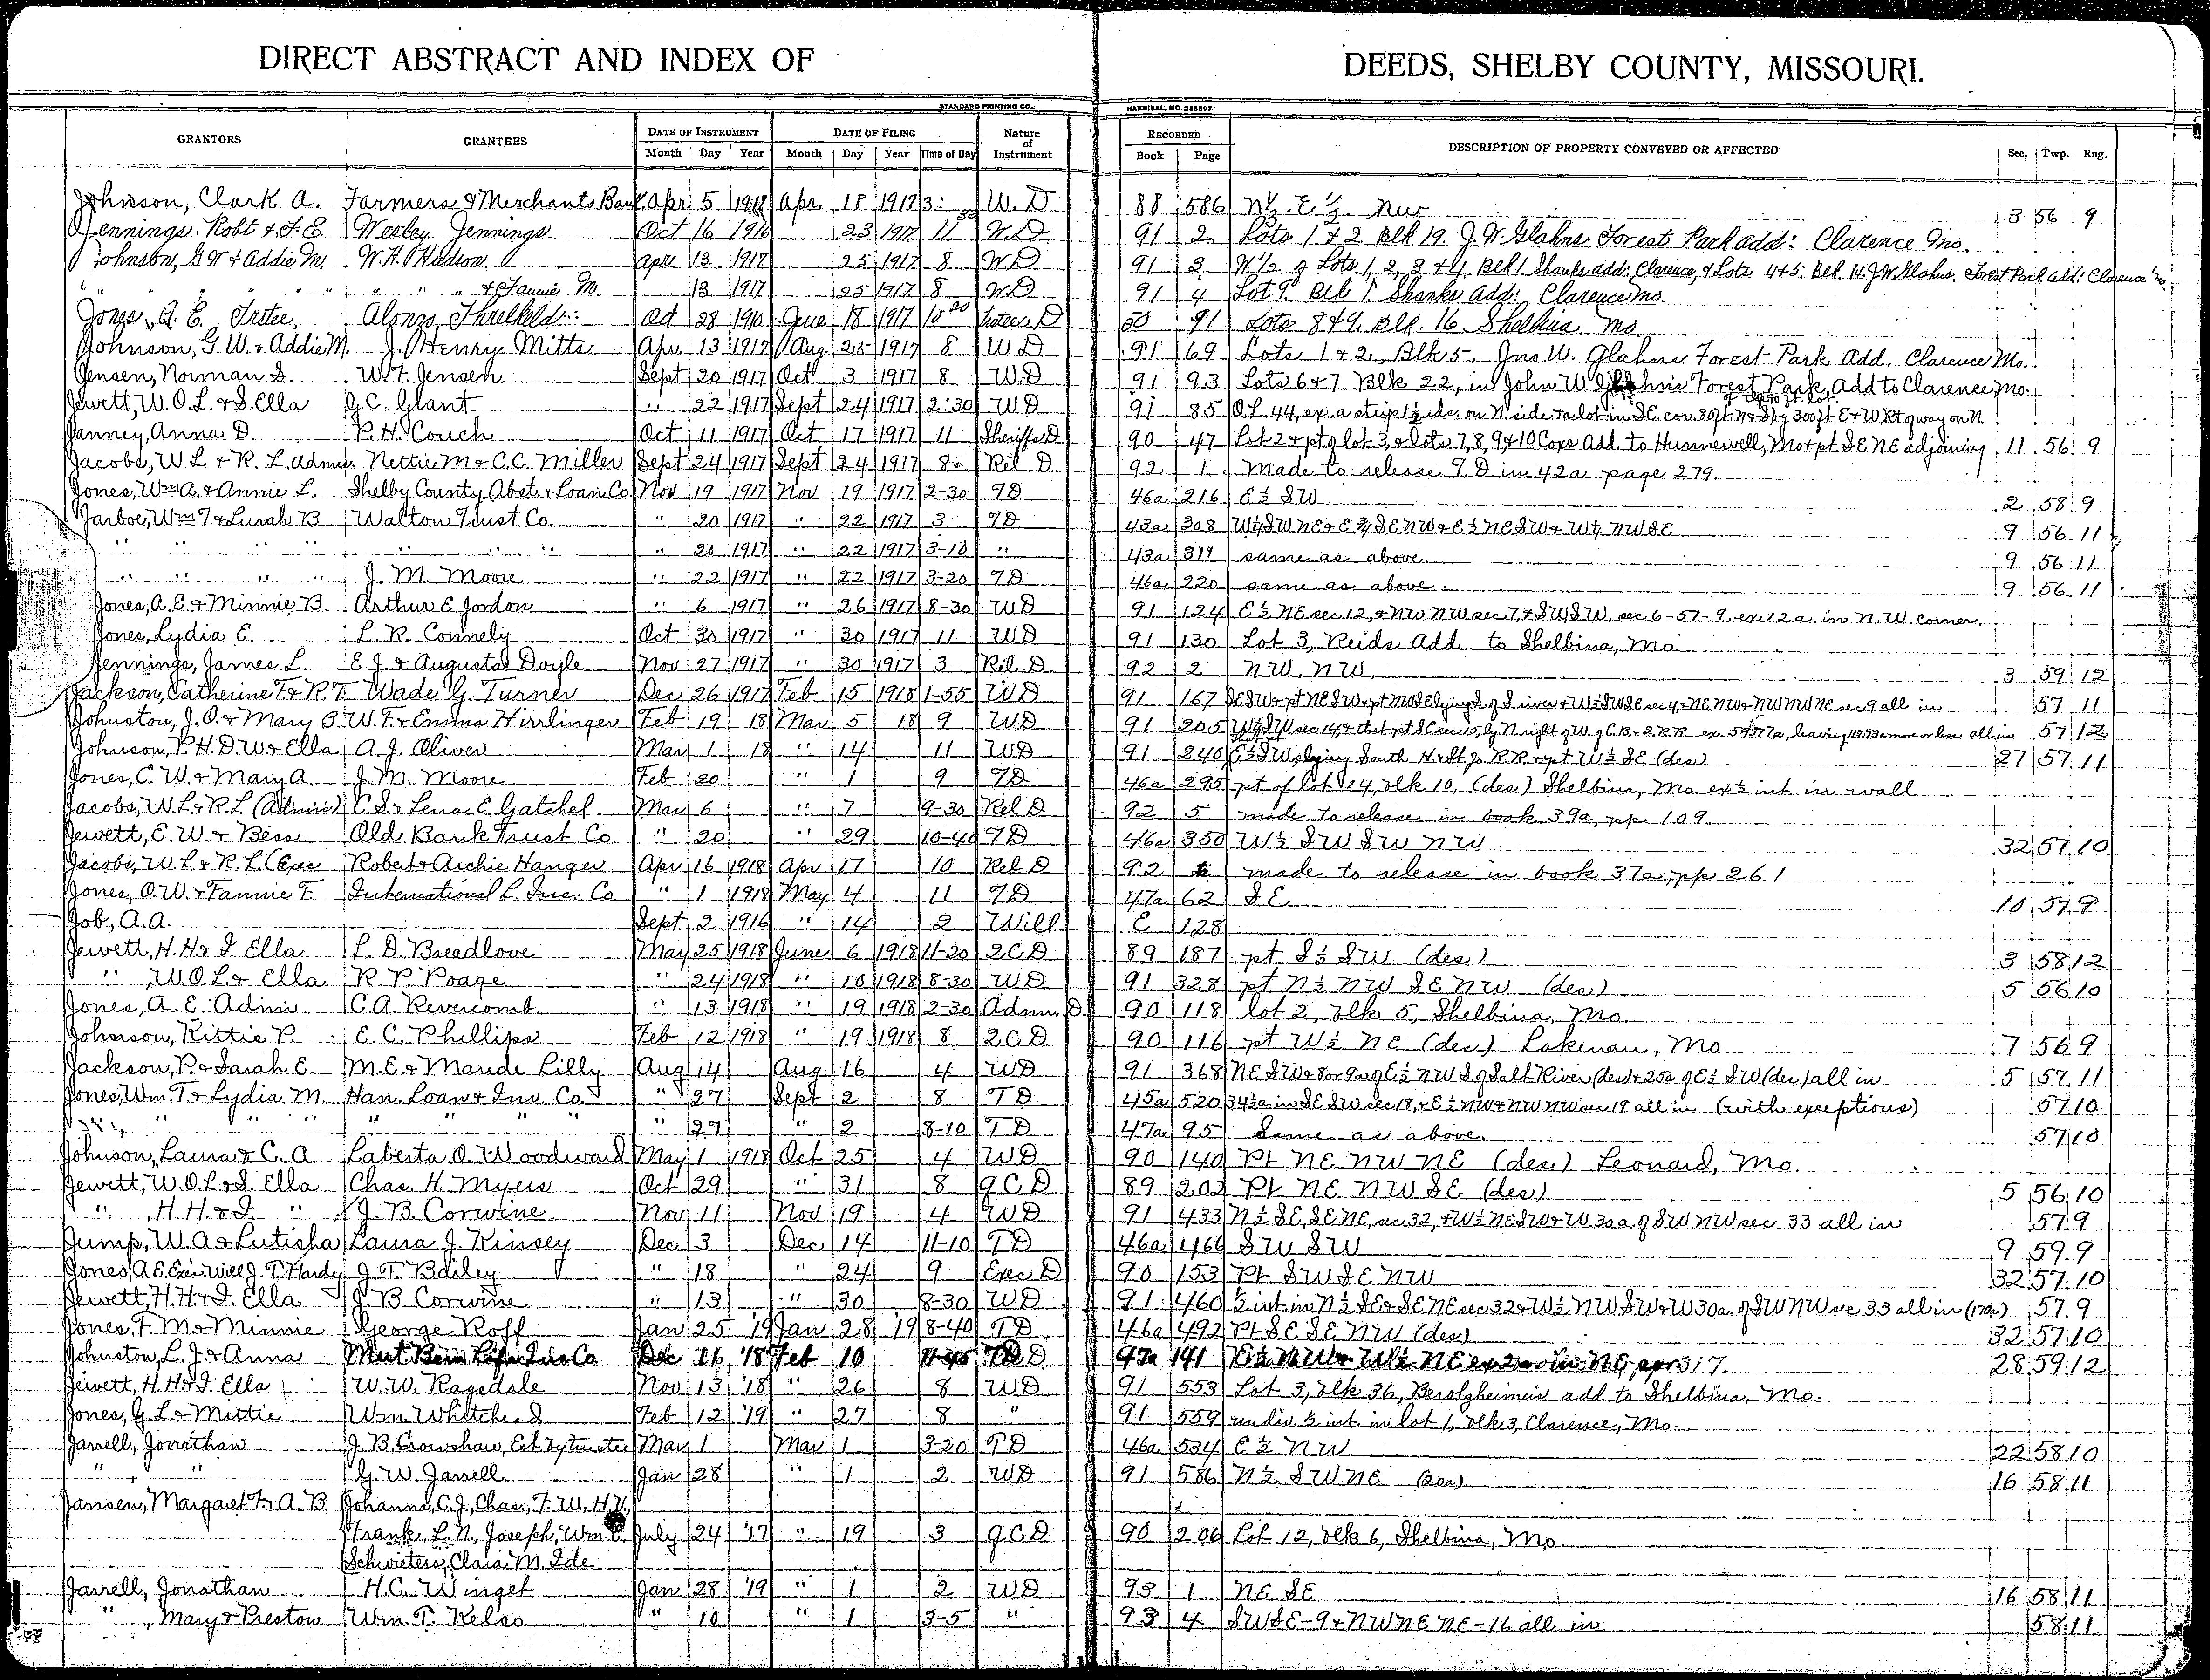 DIRECT ABSTRACT AND INDEX OF DEEDS, SHELBY COUNTY, MISSOURI.
STANDARD PRINTING CO., HANNIBAL, MO. 256697
GRANTORS GRANTEES DATE OF INSTRUMENT DATE OF FILING Nature of Instrument RECORDED DESCRIPTION OF PROPERTY CONVEYED OR AFFECTED Sec. Twp. Rng.
Month Day Year Month Day Year Time of Day Book Page
Johnson, Clark A. Farmers & Merchants Bank Apr. 5 Apr. 18 1917 3:30 W. D 88 586 N½ E½ NW 3 56 9
Jennings, Robt & F. E Wesley Jennings Oct 16 1916 23 1917 11 W. D 91 2 Lots 1 & 2 Blk 19. J. W. Glahns Forest Park add: Clarence Mo.
Johnson, G W & Addie M. W. H. Hudson Apr 13 1917 25 1917 8 W. D 91 3 W½ of Lots 1, 2, 3 & 4, Blk 1 Shanks add: Clarence, & Lots 4 & 5. Blk. 14. J. W. Glahns. Forest Park add: Clarence Mo.
" " " " " " " & Fannie M 13 1917 25 1917 8 W. D 91 4 Lot 9. Blk 1. Shanks Add: Clarence Mo.
Jones, A. E. Trstee. Alonzo Threlkeld Oct 28 1910 June 18 1917 10 20 Trstees D 50 91 Lots 8 & 9. Blk. 16. Shelbina Mo
Johnson, G. W. & Addie M. J. Henry Mitts Apr 13 1917 Aug 25 1917 8 W D 91 69 Lots 1 & 2, Blk 5, Jno W. Glahns Forest Park Add. Clarence Mo.
Jensen, Norman S. W. F. Jensen Sept 20 1917 Oct 3 1917 8 W. D 91 93 Lots 6 & 7 Blk 22, in John W. Glahns Forest Park Add to Clarence Mo.
Jewett, W. O. L. & S. Ella G. C. Glant " 22 1917 Sept 24 1917 2:30 W D 91 85 O. L. 44, ex a strip 1½ rds. on N. side & a lot in S E. cor. 80 ft. N & S by 300 ft E & W Rt of way on N.
Janney, Anna D. P. H. Couch Oct 11 1917 Oct 17 1917 11 Sheriffs D 90 47 Lot 2 & pt of lot 3, & lots 7, 8, 9 & 10 Coxs Add. to Hunnewell, Mo & pt S E N E adjoining 11 56 9
Jacobs, W L & R. L Admrs. Nettie M & C. C. Miller Sept 24 1917 Sept 24 1917 8 Rel D 92 1 Made to release T. D in 42a page 279.
Jones, Wm A. & Annie L. Shelby County Abst. & Loan Co Nov 19 1917 Nov 19 1917 2-30 T D 46a 216 E½ S W 2 58 9
Jarboe, Wm T. & Lurah B Walton Trust Co. " 20 1917 " 22 1917 3 T D 43a 308 W½ S W N E & E ¾ S E N W & E½ N E S W & W½ N W S E 9 56 11
" " " " " " " 20 1917 " 22 1917 3-10 " 43a 311 same as above 9 56 11
" " " " J. M. Moore " 22 1917 " 22 1917 3-20 T D 46a 220 same as above. 9 56 11
Jones, A. E. & Minnie B. Arthur E Jordon " 6 1917 " 26 1917 8-30 W D 91 124 E½ N E sec 12, & N W N W sec 7, & S W S W, sec 6-57-9, ex 12 a. in N. W. corner.
Jones, Lydia E. L. R. Connely Oct 30 1917 " 30 1917 11 W D 91 130 Lot 3, Reids Add. to Shelbina, Mo.
Jennings, James L. E J. & Augusta Doyle Nov 27 1917 " 30 1917 3 Rel. D 92 2 N W, N W. 3 59 12
Jackson, Catherine F. & R. T. Wade G. Turner Dec 26 1917 Feb 15 1918 1-55 W D 91 167 S E S W & pt N E S W & pt N W S E lying S. of S river & W½ S W S E sec 4, & N E N W & N W N W N E sec 9 all in 57 11
Johnston, J. O. & Mary B. W. F. & Emma Hirrlinger Feb 19 18 Mar 5 18 9 W D 91 205 W½ S W sec 14, & that pt S E sec 15, ly N. right of W. of C. B. & Q. R R. all in 57 12
Johnson, P. H. D W. & Ella A. J. Oliver Mar 1 18 " 14 11 W D 91 240 E½ S W, lying South H & St Jo R R & pt W½ S E (des) 27 57 11
Jones, C. W. & Mary A. J. M. Moore Feb 20 " 1 9 T D 46a 295 pt of lot 14, blk 10, (des) Shelbina, Mo. ex ½ int in wall
Jacobs, W. L. & R. L (Admrs) C. S. & Lena E Gatchel Mar 6 " 7 9-30 Rel D 92 5 made to release in book 39a, pp 109.
Jewett, E. W. & Bess Old Bank Trust Co " 20 " 29 10-40 T D 46a 350 W½ S W S W N W 32 57 10
Jacobs, W. L. & R. L. (Exe Robert & Archie Hanger Apr 16 1918 Apr 17 10 Rel D 92 6 made to release in book 37a, pp 261
Jones, O. W. & Fannie F. International L. Ins. Co " 1 1918 May 4 11 T D 47a 62 S E. 10 57 9
Job, A. A. Sept 2 1916 " 14 2 Will E 128
Jewett, H. H. & I. Ella L. D. Breedlove May 25 1918 June 6 1918 11-20 Q C D 89 187 pt S½ S W (des) 3 58 12
" , W. O L. & Ella R. P. Poage " 24 1918 " 10 1918 8-30 W D 91 328 pt N½ N W S E N W (des) 5 56 10
Jones, A. E. Admr. C. A. Revercomb. " 13 1918 " 19 1918 2-30 Admr. D 90 118 lot 2, blk 5, Shelbina, Mo.
Johnson, Kittie P. E. C. Phillips Feb 12 1918 " 19 1918 8 Q C D 90 116 pt W½ N E (des) Lakenan, Mo 7 56 9
Jackson, P. & Sarah E. M. E. & Maude Lilly Aug 14 Aug 16 4 W D 91 368 N E S W & 8 or 9a of E½ N W S of Salt River (des) & 25a of E½ S W (des) all in 5 57 11
Jones, Wm. T. & Lydia M. Han. Loan & Inv. Co. " 27 Sept 2 8 T D 45a 520 34½a in S E S W sec 18, & E½ N W & N W N W sec 19 all in (with exceptions) 57 10
" " " " " " " 27 " 2 8-10 T D 47a 95 Same as above. 57 10
Johnson, Laura & C. A Laberta O. Woodward May 1 1918 Oct 25 4 W D 90 140 Pt N E N W N E (des) Leonard, Mo.
Jewett, W. O. L. & S. Ella Chas. H. Myers Oct 29 " 31 8 Q C D 89 202 Pt N E N W S E (des) 5 56 10
" , H. H. & I. " J. B. Corwine Nov 11 Nov 19 4 W D 91 433 N½ S E, S E N E, sec 32, & W½ N E S W & W. 30 a. of S W N W sec 33 all in 57 9
Jump, W. A & Lutisha Laura J. Kinsey Dec 3 Dec 14 11-10 T D 46a 466 S W S W 9 59 9
Jones, A E Exr. Will J. T. Hardy J. T. Bailey " 18 " 24 9 Exec D 90 153 Pt S W S E N W 32 57 10
Jewett, H. H. & I. Ella J. B Corwine " 13 " 30 8-30 W D 91 460 ½ int in N½ S E & S E N E sec 32 & W½ N W S W & W 30a. of S W N W sec 33 all in (170a) 57 9
Jones, F. M. & Minnie George Roff Jan 25 '19 Jan 28 '19 8-40 T D 46a 492 Pt S E S E N W (des) 32 57 10
Johnston, L. J. & Anna Mut. Ben. Life Ins Co Dec 16 '18 Feb 10 T D 47a 141 E½ N W & W½ N E 28 59 12
Jewett, H. H & I. Ella W. W. Ragsdale Nov 13 '18 " 26 8 W D 91 553 Lot 3, blk 36, Berolzheimers add to Shelbina, Mo.
Jones, G. L. & Mittie Wm. Feb 12 '19 " 27 8 " 91 559 undiv. ½ int. in lot 1, blk 3, Clarence, Mo.
Jarrell, Jonathan J. B. Crowshaw, Est. by trustee Mar 1 Mar 1 3-20 T D 46a 534 E½ N W 22 58 10
" " G. W. Jarrell Jan 28 " 1 2 W D 91 586 N½ S W N E (20a) 16 58 11
Jansen, Margaret F. & A. B Johanna, C. J, Chas., F. W, H. H,
Frank, L. N, Joseph, Wm. C. July 24 '17 " 19 3 Q C D 90 206 Lot 12, blk 6, Shelbina, Mo.
Schwieters, Clara M. Ide
Jarrell, Jonathan H. C. Winget Jan 28 '19 " 1 2 W D 93 1 N E S E 16 58 11
" , Mary & Preston Wm. T. Kelso " 10 " 1 3-5 " 93 4 S W S E - 9 & N W N E N E - 16 all in 58 11